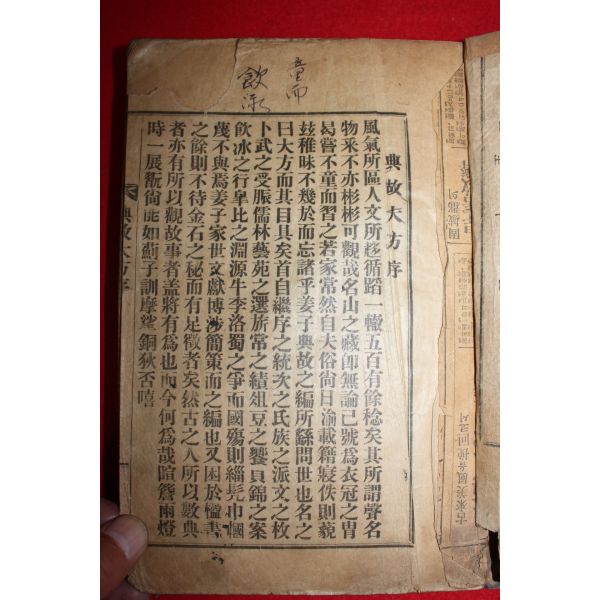 童而
飲
典故大方序
風氣所區人文所趍循蹈一轍五百有餘稔矣其所謂聲名
物采不亦彬彬可觀哉名山之藏卽無論已號爲衣冠之胄
曷嘗不童而習之若家常然自夫俗尙日渝載籍寢佚則藐
玆稚昧不幾於而忘諸乎姜子典故之編所繇問世也名之
曰大方而其目具矣首自繼序之統次之氏族之派文之枚
卜武之受脤儒林藝苑之選旂常之績俎豆之饗貝錦之案
飮冰之行皐比之淵源牛李洛蜀之爭而國殤則緇髡巾幗
蔑不與焉姜子家世文獻博涉簡策而之編也又困於榏書
之餘則不待金石之秘而有足徵者矣然古之人所以數典
者亦有所以觀故事者盖將有爲也而今何爲哉暄簷雨燈
時一展翫尙能如薊子訓摩挲銅狄否嘻
典故大方序
古來美風